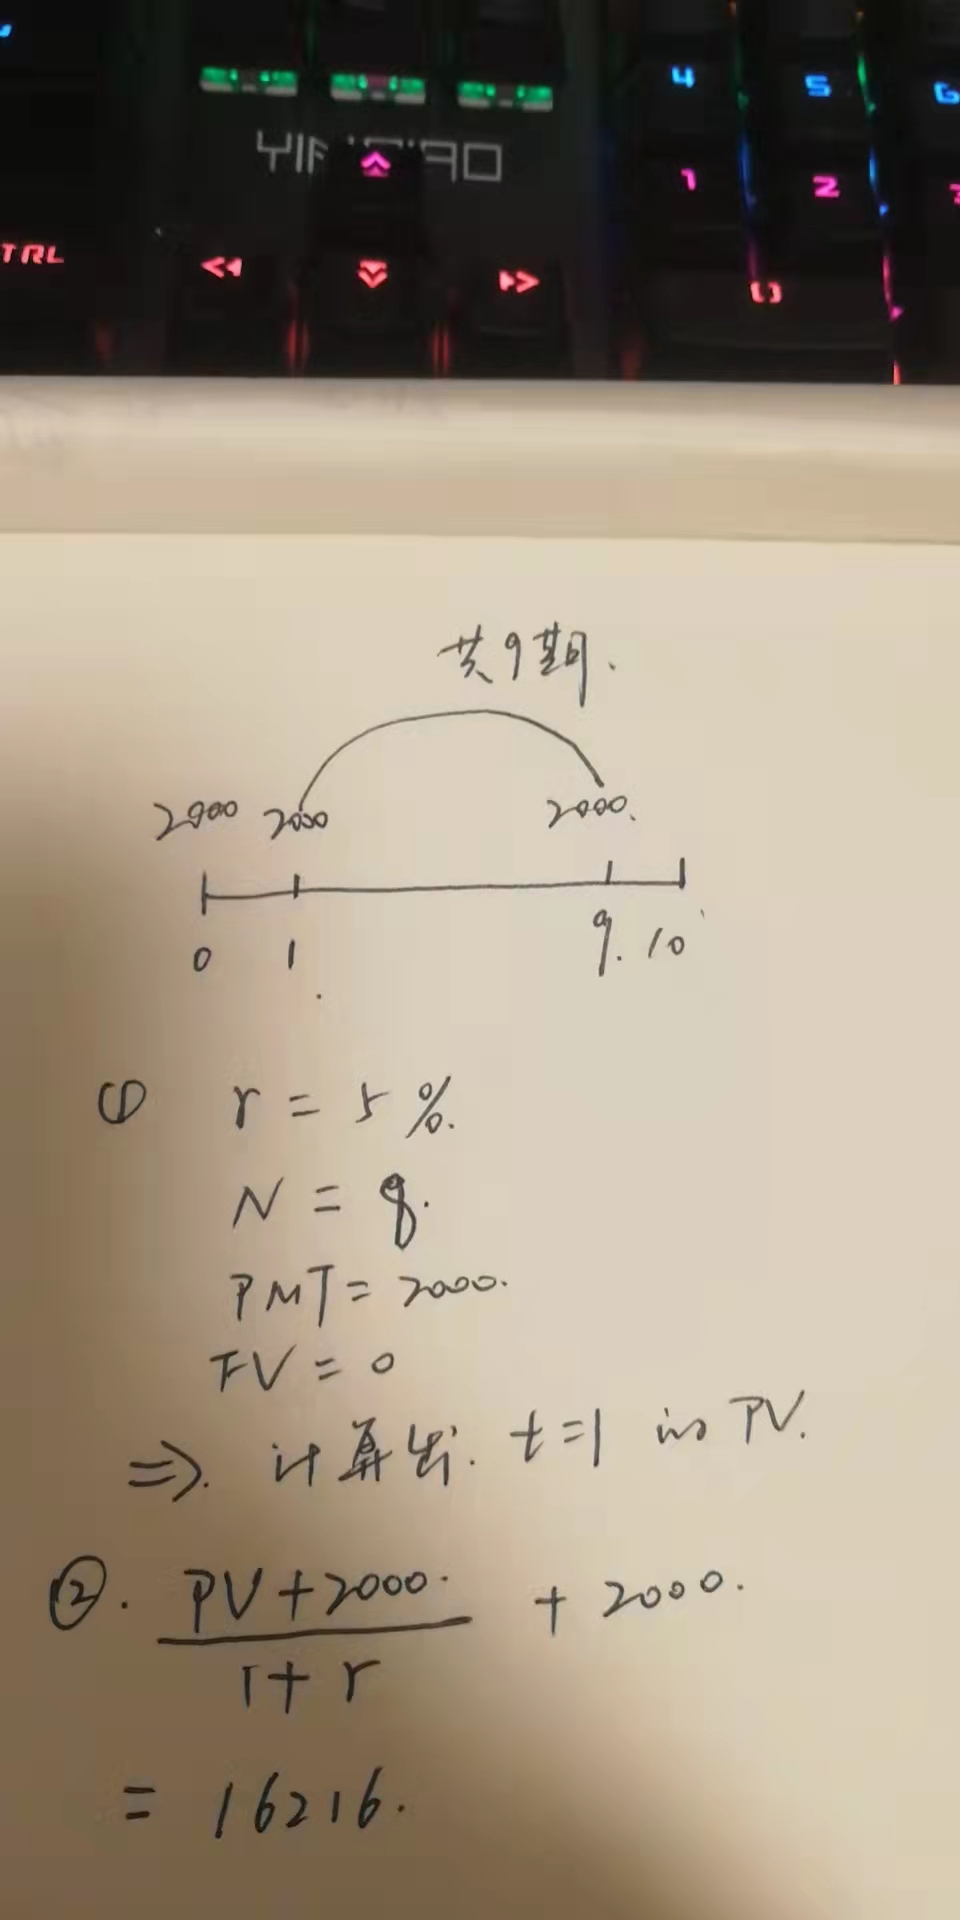 4 5 6
1 2 3
TRL
共9期.
2000 2000 2000.
0 1 9. 10
① r = 5%.
N = 8.
PMT = 2000.
FV = 0
⇒. 计算出. t=1 的 PV.
②. PV+2000. / 1+r + 2000.
= 16216.